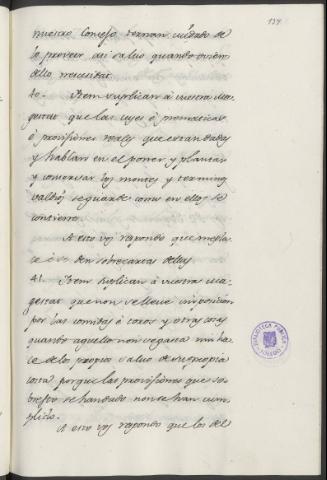 134
nuestro Consejo ternan cuidado de
lo proveer asi salvo quando vieren
dello necesitar.
40. Item suplican á vuestra Ma-
gestad que las leyes ó prematicas
ó provisiones reales que estan dadas
y hablan en el poner y plantar
y conservar los montes y terminos
valdios se guarde como en ellos se
contiene.
A esto vos respondo que me pla-
ce é se den sobrecartas dellas
41. Item suplican á vuestra ma-
gestad que non se lleve imposicion
por las comidas ó cotos y otras cosas
quando aquello non vegara ni na-
ce de los propios salvo de su propia
costa porque las provisiones que so-
bresto se han dado non se han cum-
plido.
A esto vos respondo que los del
BIBLIOTECA PUBLICA
TOLEDO